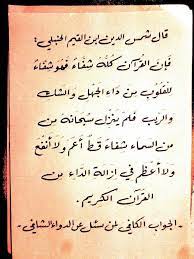 قال شمس الدين ابن القيم الحنبلي:
فإن القرآن كله شفاء فهو شفاء
للقلوب من داء الجهل والشك
والريب فلم ينزل سبحانه من
من السماء شفاء قط أعم ولا أنفع
ولا أعظم في إزالة الداء من
القرآن الكريم.
- الجواب الكافي لمن سئل عن الدواء الشافي -